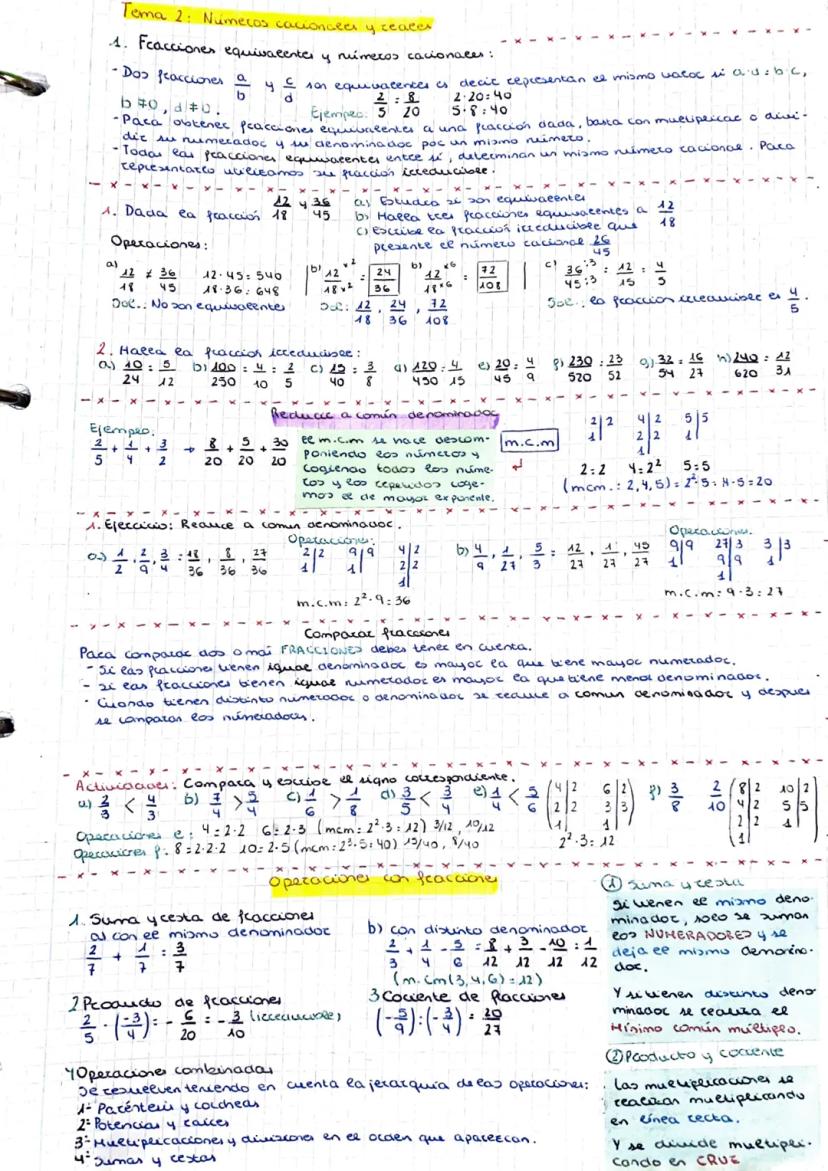 Tema 2: Números racionales y reales
1. Fracciones equivalentes y números racionales:
- Dos fracciones a/b y c/d son equivalentes es decir representan el mismo valor si a·d = b·c,
b ≠ 0, d ≠ 0. Ejemplo: 2/5 = 8/20 2·20=40 5·8=40
- Para obtener fracciones equivalentes a una fracción dada, basta con multiplicar o divi-
dir su numerador y su denominador por un mismo número.
- Todas las fracciones equivalentes entre sí, determinan un mismo número racional. Para
representarlo utilizamos su fracción irreducible.
1. Dada la fracción 12/18 y 36/45 a) Estudia si son equivalentes
b) Halla tres fracciones equivalentes a 12/18
c) Escribe la fracción irreducible que
presente el número racional 26/45
Operaciones:
a) 12/18 ≠ 36/45 12·45=540 18·36=648
Sol.: No son equivalentes
b) 12/18 ×2 ×2 = 24/36 b) 12/18 ×6 ×6 = 72/108
Sol: 12/18, 24/36, 72/108
c) 36/45 :3 :3 = 12/15 = 4/5
Sol.: la fracción irreducible es 4/5.
2. Halla la fracción irreducible:
a) 10/24 = 5/12 b) 100/250 = 4/10 = 2/5 c) 15/40 = 3/8 d) 120/450 = 4/15 e) 20/45 = 4/9 f) 230/520 = 23/52 g) 32/54 = 16/27 h) 240/620 = 12/31
Reducir a común denominador
Ejemplo:
2/5 + 1/4 + 3/2 → 8/20 + 5/20 + 30/20
el m.c.m se hace descom-
poniendo los números y
cogiendo todos los núme-
ros y los repetidos coge-
mos el de mayor exponente.
m.c.m
2|2 4|2 5|5
1| 2|2 1|
1|
2=2 4=2² 5=5
(mcm.: 2,4,5) = 2²·5 = 4·5=20
1. Ejercicio: Reduce a común denominador.
a) 1/2, 2/9, 3/4 = 18/36, 8/36, 27/36
Operaciones:
2|2 9|9 4|2
1| 1| 2|2
1|
m.c.m: 2²·9=36
b) 4/9, 1/27, 5/3 = 12/27, 1/27, 45/27
Operaciones.
9|9 27|3 3|3
1| 9|9 1|
1|
m.c.m: 9·3=27
Comparar fracciones
Para comparar dos o mas FRACCIONES debes tener en cuenta.
- Si las fracciones tienen igual denominador es mayor la que tiene mayor numerador.
- si las fracciones tienen igual numerador es mayor la que tiene menor denominador.
· Cuando tienen distinto numerador o denominador se reduce a comun denominador y despues
se comparan los numeradores.
Actividades: Compara y escribe el signo correspondiente.
a) 2/3 < 4/3 b) 7/4 > 5/4 c) 1/6 > 1/8 d) 3/5 < 3/4 e) 1/4 < 5/6
4|2 6|2
2|2 3|3
1| 1|
2²·3=12
f) 3/8 2/10
8|2 10|2
4|2 5|5
2|2 1|
1|
Operaciones e: 4=2·2 6=2·3 (mcm: 2²·3=12) 3/12, 10/12
Operaciones f: 8=2·2·2 10=2·5 (mcm: 2³·5=40) 15/40, 8/40
Operaciones con fracciones
1. Suma y resta de fracciones
a) con el mismo denominador
2/7 + 1/7 = 3/7
b) con distinto denominador
2/3 + 1/4 - 5/6 = 8/12 + 3/12 - 10/12 = 1/12
(m.cm(3,4,6)=12)
2 Producto de fracciones
2/5 · (-3/4) = - 6/20 = - 3/10 (irreducible)
3 Cociente de fracciones
(-5/9) : (-3/4) = 20/27
4 Operaciones combinadas
Se resuelven teniendo en cuenta la jerarquía de las operaciones:
1º Paréntesis y corcheas
2º Potencias y raíces
3º Multiplicaciones y divisiones en el orden que aparezcan.
4º Sumas y restas
① Suma y resta
Si tienen el mismo deno-
minador, solo se suman
los NUMERADORES y se
deja el mismo denomina-
dor.
Y si tienen distinto deno
minador se realiza el
Mínimo común múltiplo.
② Producto y cociente
Las multiplicaciones se
realizan multiplicando
en línea recta.
Y se divide multipli-
cando en CRUZ